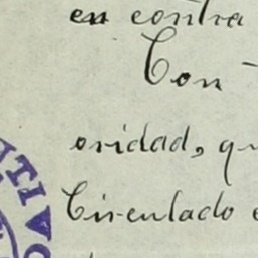 en contra
Con
oridad, qu
Circulado
TI